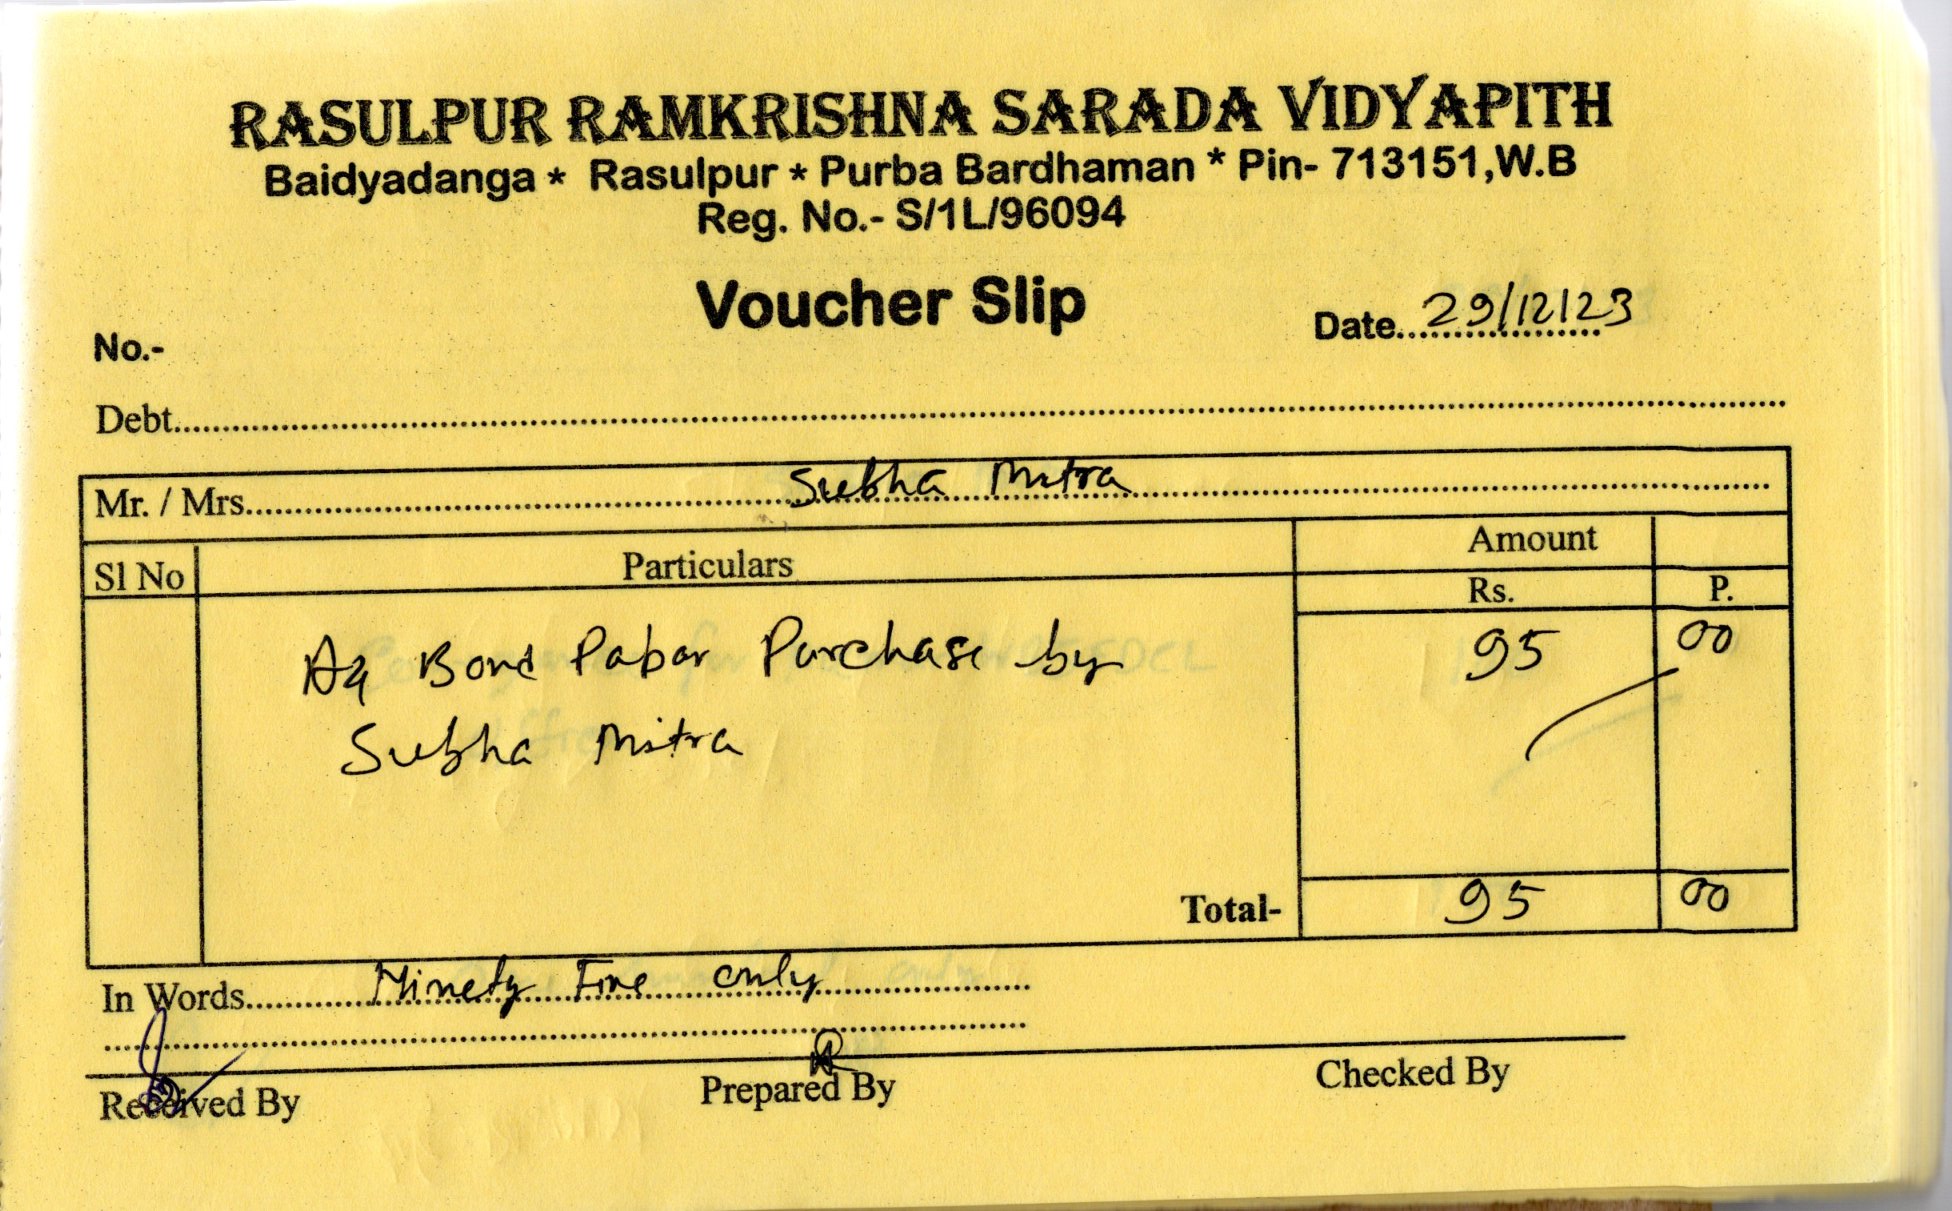 RASULPUR RAMKRISHNA SARADA VIDYAPITH
Baidyadanga * Rasulpur * Purba Bardhaman * Pin- 713151,W.B
Reg. No.- S/1L/96094
Voucher Slip
No.-
Date..... 29/12/23
Debt.....
Mr. / Mrs..... Subha Mitra
Sl No Particulars Amount
Rs. P.
A4 Bond Pabar Purchase by 95 00
Subha Mitra
Total- 95 00
In Words..... Ninety Five only
Received By Prepared By Checked By